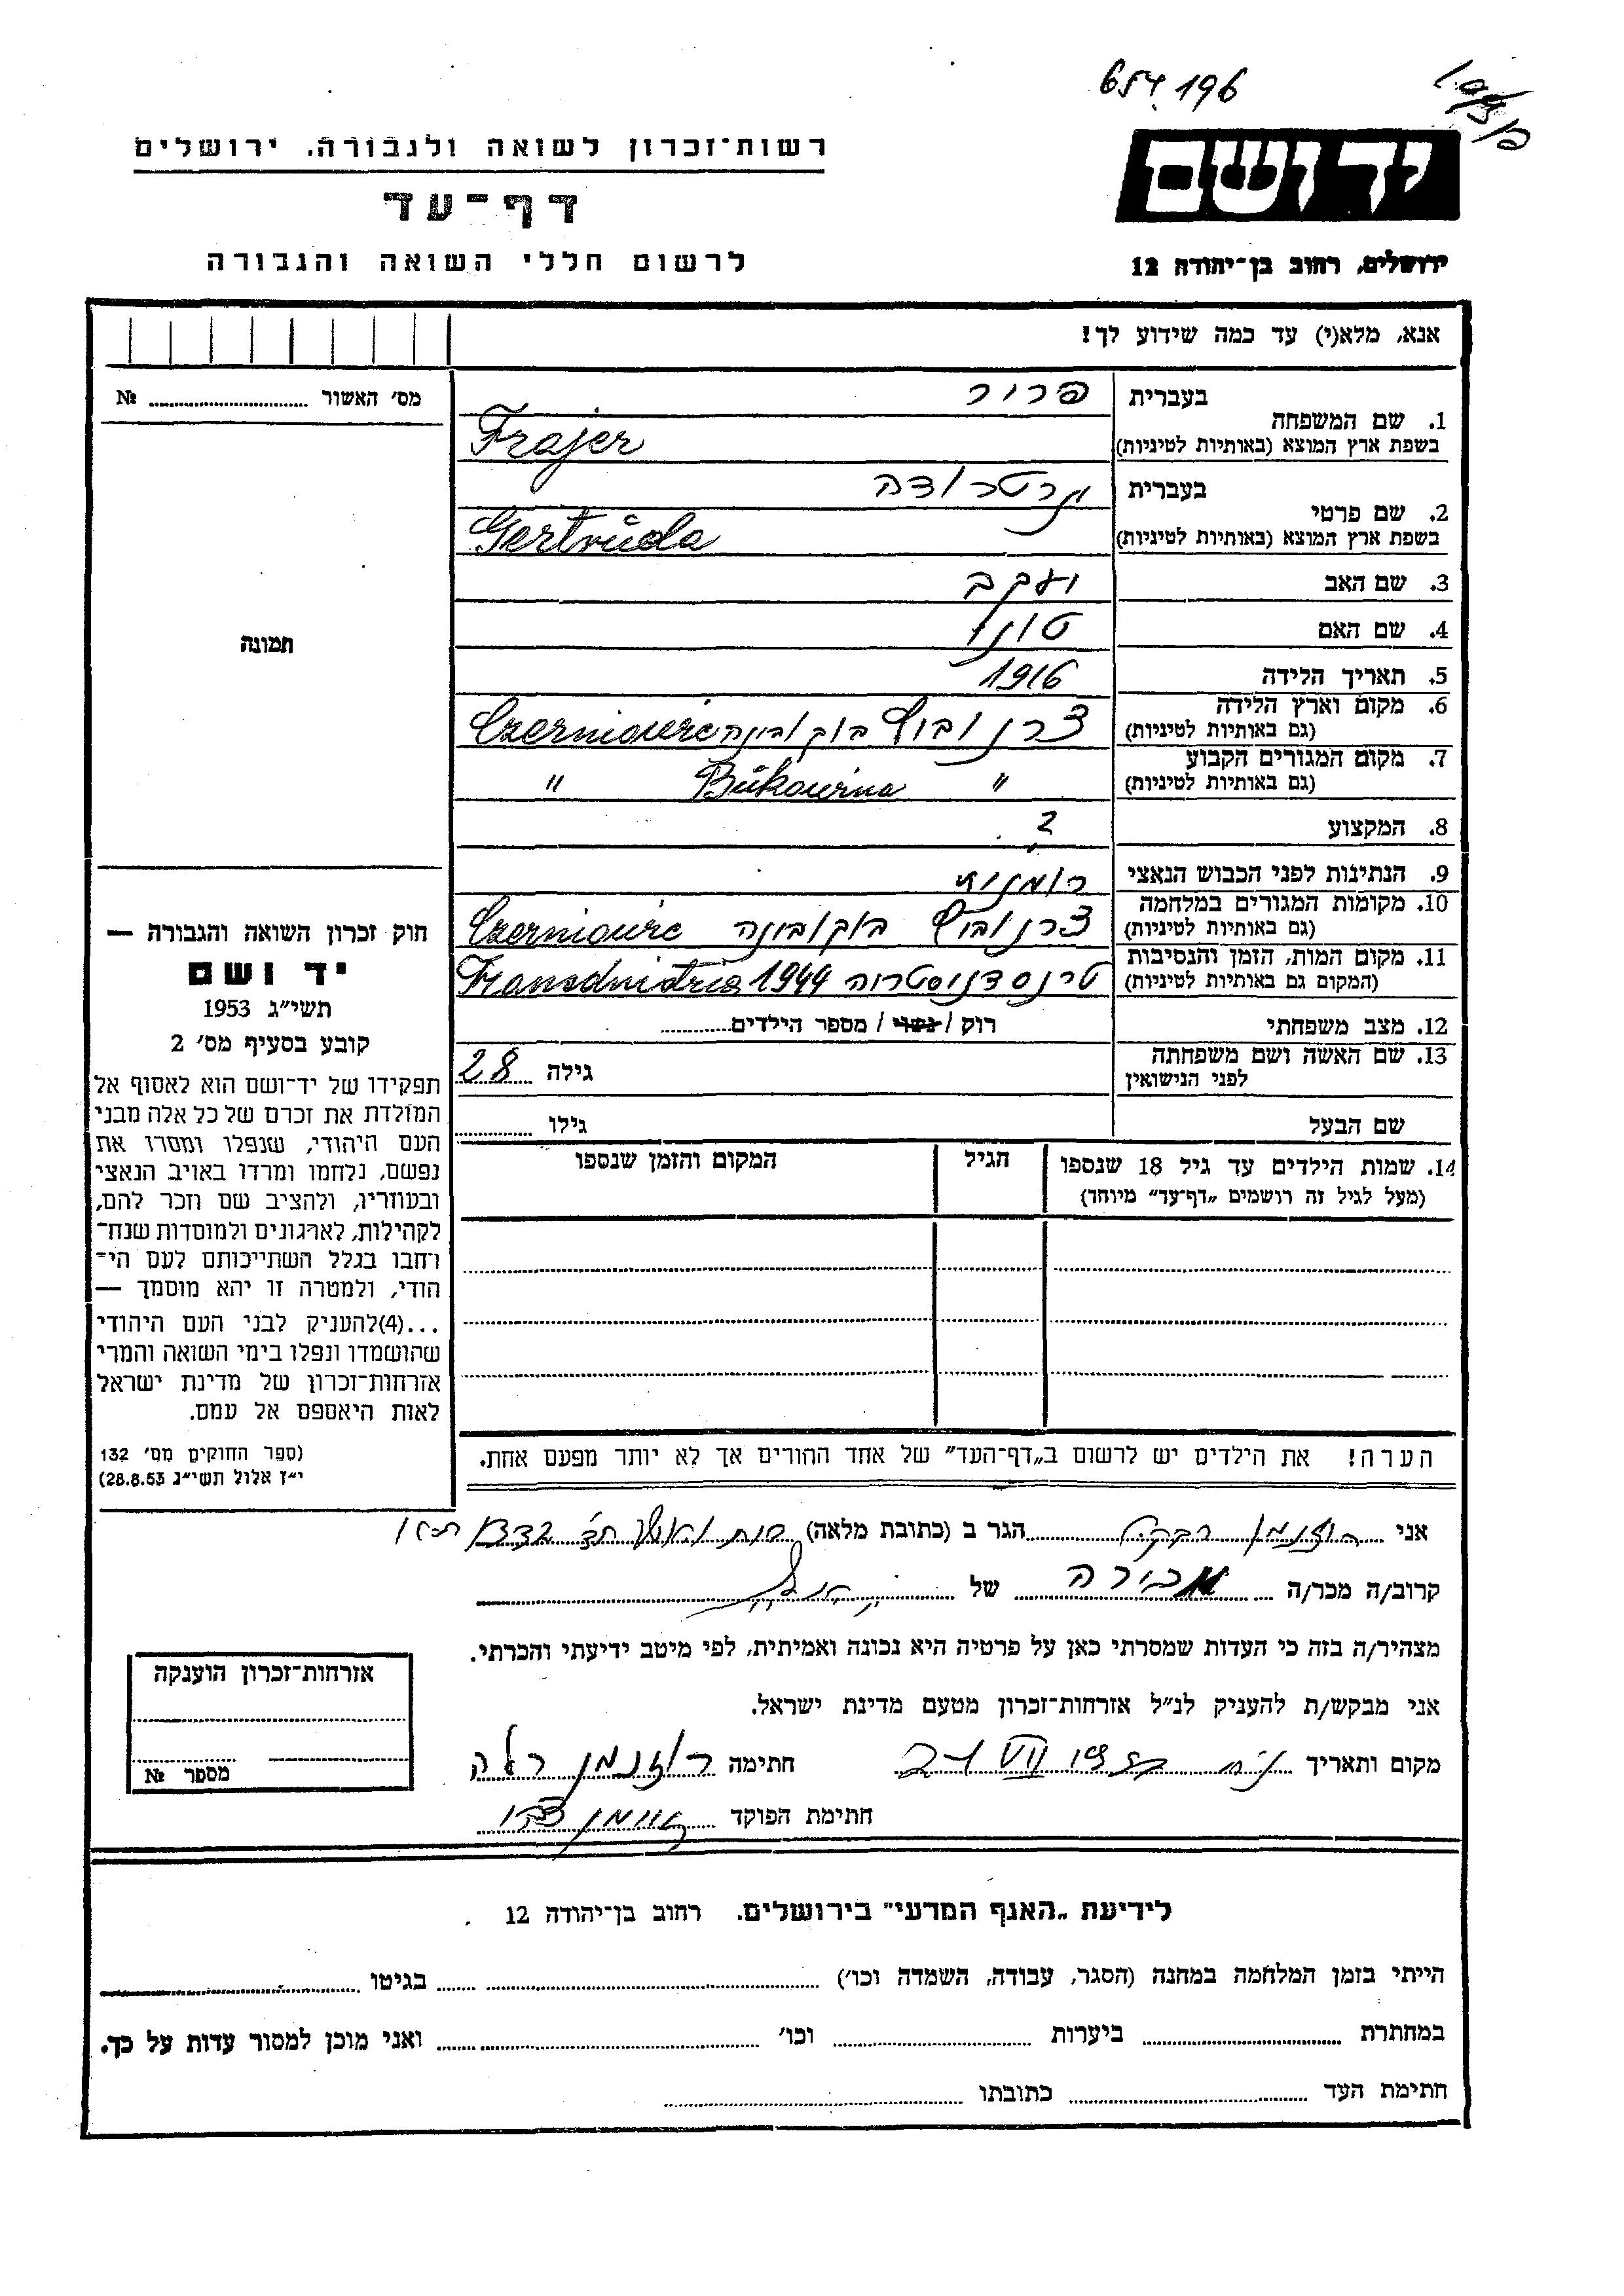 654.196
ידושם
ירושלים, רחוב בן־יהודה 12
רשות־זכרון לשואה ולגבורה. ירושלים
דף־עד
לרשום חללי השואה והגבורה
אנא, מלא(י) עד כמה שידוע לך!
מס׳ האשור № ............
תמונה
1. שם המשפחה בעברית פריר
בשפת ארץ המוצא (באותיות לטיניות) Frajer
2. שם פרטי בעברית גרטרודה
בשפת ארץ המוצא (באותיות לטיניות) Gertrŭda
3. שם האב יעקב
4. שם האם טוני
5. תאריך הלידה 1916
6. מקום וארץ הלידה (גם באותיות לטיניות) צרנוביץ בוקובינה Czerniowic
7. מקום המגורים הקבוע (גם באותיות לטיניות) " Bŭkowina "
8. המקצוע ?
9. הנתינות לפני הכבוש הנאצי רומנית
10. מקומות המגורים במלחמה (גם באותיות לטיניות) צרנוביץ בוקובינה Czerniowic
11. מקום המות, הזמן והנסיבות (המקום גם באותיות לטיניות) טרנסדניסטריה 1944 Transdnistria
12. מצב משפחתי רוק / נשוי / מספר הילדים............
13. שם האשה ושם משפחתה לפני הנישואין גילה 28
שם הבעל גילו ............
14. שמות הילדים עד גיל 18 שנספו (מעל לגיל זה רושמים „דף־עד” מיוחד) הגיל המקום והזמן שנספו
הערה! את הילדים יש לרשום ב„דף־העד” של אחד ההורים אך לא יותר מפעם אחת.
חוק זכרון השואה והגבורה —
יד ושם
תשי״ג 1953
קובע בסעיף מס׳ 2
תפקידו של יד־ושם הוא לאסוף אל
המולדת את זכרם של כל אלה מבני
העם היהודי, שנפלו ומסרו את
נפשם, נלחמו ומרדו באויב הנאצי
ובעוזריו, ולהציב שם וזכר להם,
לקהילות, לארגונים ולמוסדות שנח־
רחבו בגלל השתייכותם לעם הי־
הודי, ולמטרה זו יהא מוסמך —
...(4)להעניק לבני העם היהודי
שהושמדו ונפלו בימי השואה והמרי
אזרחות־זכרון של מדינת ישראל
לאות היאספם אל עמם.
(ספר החוקים מס׳ 132
י״ז אלול תשי״ג 28.8.53)
אני רוזנמן הגר ב (כתובת מלאה)
קרוב/ה מכר/ה מכירה של
מצהיר/ה בזה כי העדות שמסרתי כאן על פרטיה היא נכונה ואמיתית, לפי מיטב ידיעתי והכרתי.
אני מבקש/ת להעניק לנ״ל אזרחות־זכרון מטעם מדינת ישראל.
מקום ותאריך 21 VII חתימה רוזנמן
חתימת הפוקד
אזרחות־זכרון הוענקה
מספר №
לידיעת „האגף המדעי” בירושלים. רחוב בן־יהודה 12
הייתי בזמן המלחמה במחנה (הסגר, עבודה, השמדה וכו׳) ............ בגיטו ............
במחתרת ............ ביערות ............ וכו׳ ............ ואני מוכן למסור עדות על כך.
חתימת העד ............ כתובתו ............